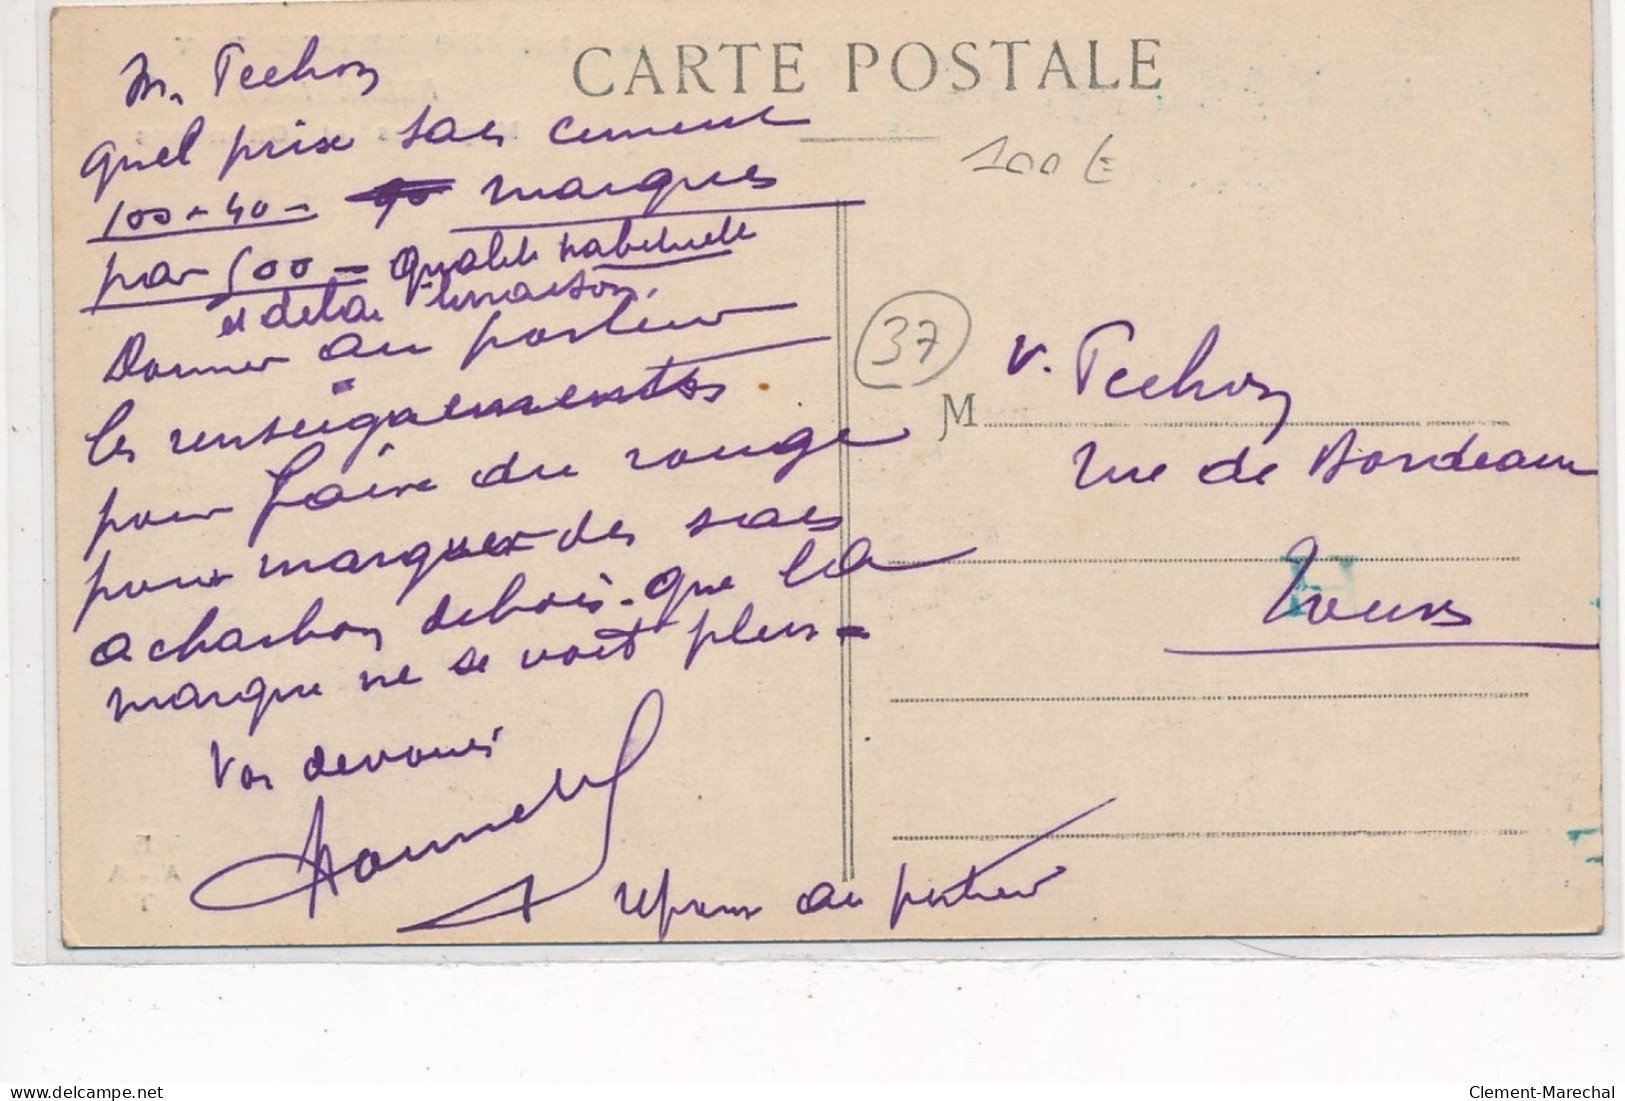 CARTE POSTALE
M. Pechon
quel prix sacs ciment
100 - 40 - marques
par 500 = Qualité habituelle
et délai livraison.
Donner au porteur
les renseignements
pour faire du rouge
pour marquer des sacs
a charbon debois. que la
marque ne se voit plus =
Vos dévoués
reponse au porteur
100 €
37
M v. Pechon
rue de Bordeaux
Tours
www.delcampe.net
Clement-Marechal